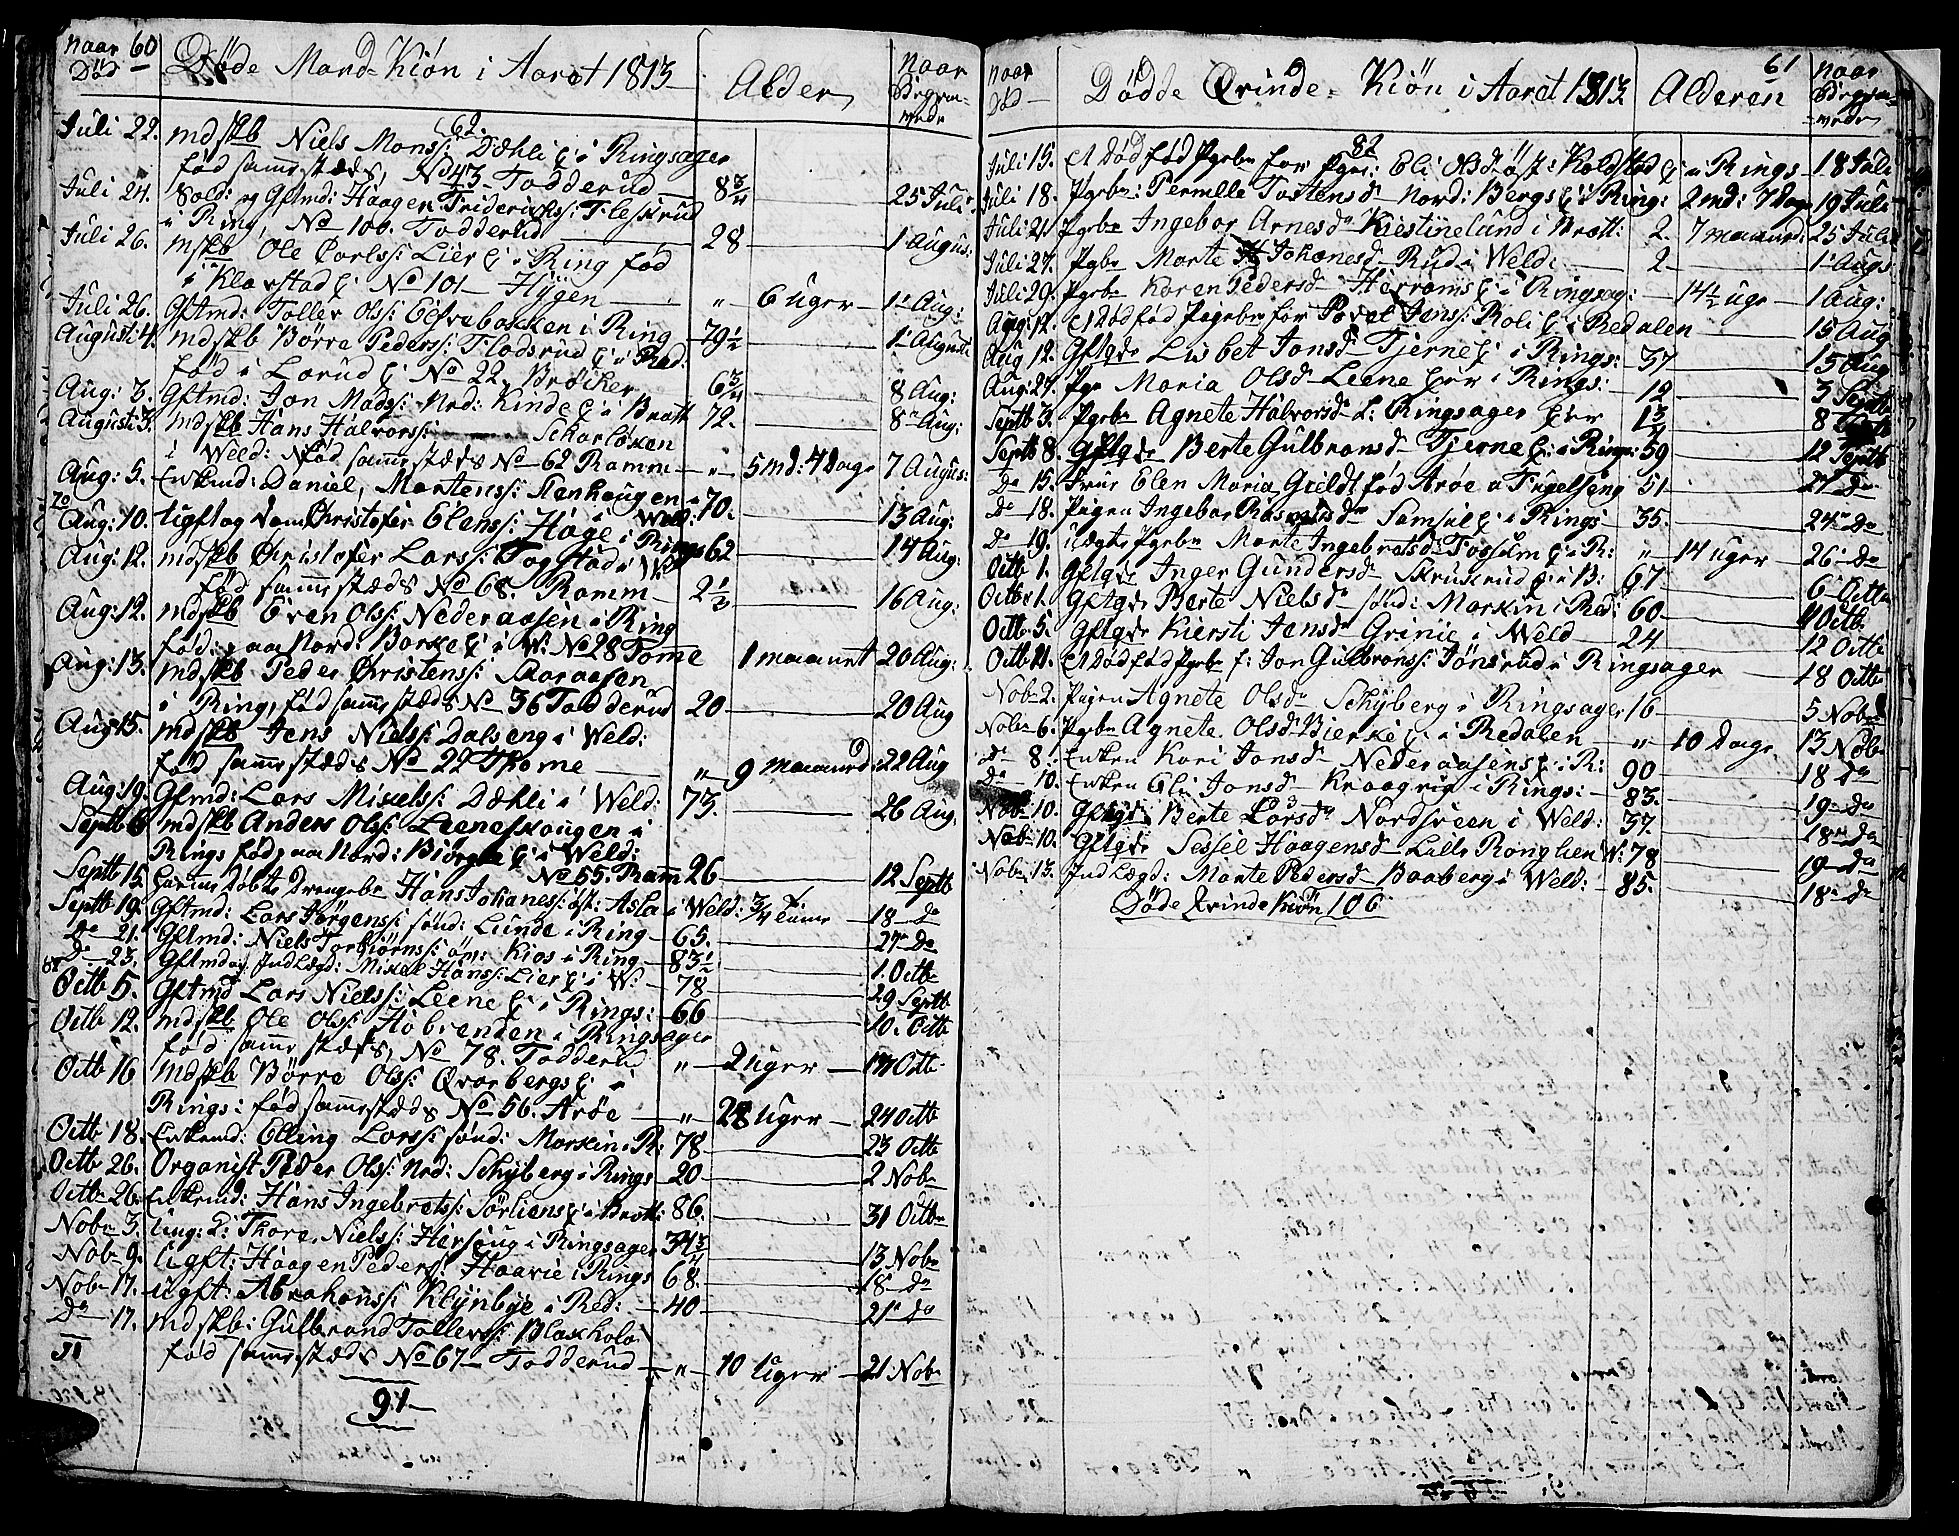 Naar Död 60
Döde Mand-Kiön i Aaret 1813
Alder
Naar Begra=vede
62.
Juli 22. mdskb Niels Monss: Dæhli i Ringsager
fød samestæds, No 43 Todderud — 8 3/4 — 25 Juli
Juli 24. Sold: og Gftmd: Haagen Friderichss: Fleskrud
i Ring, No 100. Todderud — 28 — 1 Augus:
Juli 26. mskb Ole Carlss: Lier i Ring fød
i Klavstad No 101 — Hygen — " 6 Uger — 1 Aug:
Juli 26. Gftmd: Toller Olss: Elfvebakken i Ring — 79 1/2 — 1 Augusti
Augusti 4. mdskb Börre Pederss: Flodsrud i Red:
fød i Lorud No 22, Bröcher — 6 3/4 — 8 Aug:
Aug: 3. Gftmd: Jon Madss: Nrd: Kinde i Brøtt 72. — 8 Aug:
Augusti 3. mdskb Hans Halvorss: Skarløken
i Weld: fød samestæds No 62 Ramm — " — 5 md: 4 Dage 7 Augus:
Aug: 5. Enkmd: Daniel Mortenss: Stenhaugen i Weld: 70. — 13 Aug:
70
Aug: 10. Ugft og dom Christofer Elenss: Hage i Rings 62 — 14 Aug:
Aug: 12. mdskb Christofer Larss: Fogstad i W:
fød samestæds No 68. Ramm — 2 1/2 — 16 Aug:
Aug: 12. mdskb Even Olss: Nederaasen i Ring
fød paa Nord: Borke i W: No 28 Tome 1 maanet 20 Aug:
Aug: 13. mdskb Peder Christenss: Skaraasen
i Ring, fød samestæds No 36 Todderud 20 — 20 Aug
Aug 15. mdskb Jens Nielss: Dalseng i Weld:
fød samestæds No 22 Thome — " 9 maaned: 22 Aug
Aug: 19. Gftmd: Lars Mikelss: Dæhli i Weld: 73. — 26 Aug.
Septb 6 mdskb Anders Olss: Leeneskougen i
Rings fød paa Nord: Biörge i Weld:
No 55. Ramm 26 — 12 Septb
Septb 15. Døbte Drengebr Hans Johaness: øst: Asla i Weld: 3/4 Time — 18 Do
Septb 19. Gftmd: Lars Jörgenss: sönd: Lunde i Ring — 65. — 27 Do
Do 21. Gftmd: Niels Torbiörnss: Kios i Ring — 83 1/2 — 1. Octb
Do 23. Gftmd og IndLægd: Mikel Hanss: Lier i W: — 78 — 29 Septb
Octb 5. Gftmd Lars Nielss: Leene i Rings: — 66 — 10. Octb
Octb 12. mdskb Ole Olss: Hobrenden i Ringsager
fød samestæds, No 78. Todderud " — 2 Uger — 17 Octb
Octb 16 mdskb Börre Olss: Qvarbergs i
Rings: fød samestæds No 56. Aröe — " — 28 Uger — 24 Octb
Octb 18. Enkemd: Elling Larss: sönd: Morkin i R: 78 — 23 Octb
Octb 26. Organist Peder Olss: Nrd: Schyberg i Rings 20 — 2 Nobr
Octbr 26. Enkemd: Hans Ingebretss: Sørliens i Brøtt: 86. — 31 Octbr
Nobr 3. Ung: d: Thore Nielss: Hersoug i Ringsager 34 3/4 — 13 Nobr
Nob 9. Ugft: Haagen Pederss: Haavie i Rings 68. — 18 Do
Nobr 17. Ugft: Abrahamss: Klynbye i Red: — 40 — 21 Do
Do 17. mdskb: Gulbrand Tollerss: Blakholø
fød samestæds No 67 — Todderud — " — 10 Uger — 21 Nob
91
Naar Död
Dödde Qvinde-Kiön i Aaret 1813
Alderen
61
Naar Begra=vede
82
Juli 15. et Dödfød Pgebr for Pge: Eli Olsdr øst: Kolstad i Rings — 18 Juli
Juli 18. Pgebr: Pernille Tostensd Nord: Bergs i Ring: 2 md: 7 Dage 19 Juli
Juli 21. Pgebr Ingebor Arnesdr Kiestinelund i Brøtt: 2. 7 maaned: 25 Juli
Juli 27. Pgebr Marte Johanesd Rud i Weld: — 2 — 1 Augs
Juli 29. Pgebr Karen Pedersd Herrams i Ringsag: — 14 1/2 Uge — 1 Aug:
Aug: 12. et Dödfød Pigebr for Povel Jonss: Roli i Redalen — 15 Aug
Aug 12. Gftqde Lisbet Jonsd Tjerne i Rings: — 37 — 15 Aug
Aug: 27. Pge Maria Olsd Leene i Rings: — 12 — 3 Septb
Septb 3. Pgebr Agnete Halvorsd L: Ringsager — 1 3/4 — 8
Septb 8. Gftqde Berte Gulbransd Tjerne i Rings: 59 — 12 Septb
Do 15. Frue Elen Maria Guldt fød Aröe a Fugelseng 51 — 27 Do
Do 18. Pigen Ingebor Rasmusdr Samsal i Rings — 35. — 24 Do
Do 19. Uægte Pgebr Marte Ingebretsd Fossum i R: " — 14 Uger — 26 Do
Octb 1. Gftqde Inger Gundersd Skruerud i B: 67 — 6 Octbr
Octbr 1. Gftqde Berte Nielsdr sönd: Morkin i Red: 60 — 11 Octb
Octb 5. Gftqde Kiersti Jensdr Grinie i Weld — 24 — 12 Octbr
Octb 11. et Dödfød Pgebr f: Jon Gulbranss: Jönsrud i Ringsager — 18 Octb
Nobr 2. Pigen Agnete Olsdr Schyberg i Ringsager 16 — 5 Nobr
Nobr 6. Pgebr Agnete Olsd Bierke i Redalen — " — 10 Dage 13 Nobr
Do 8. Enken Kari Jonsd Nederaasens i R: 90 — 18 Do
Do 10. Enken Eli Jonsd Kraagvig i Rings: — 83. — 19 Do
Nobr 10. Gftqde Berte Larsdr Nordsveen i Weld: 37. — 18 Do
Nobr 10. Gftqde Sessel Haagensd Lille Ronglien W: 78 — 19 Do
Nobr 13. IndLægd: Marte Pedersd Baaberg i Weld: — 85. — 18 Do
Döde Qvinde Kiön 106